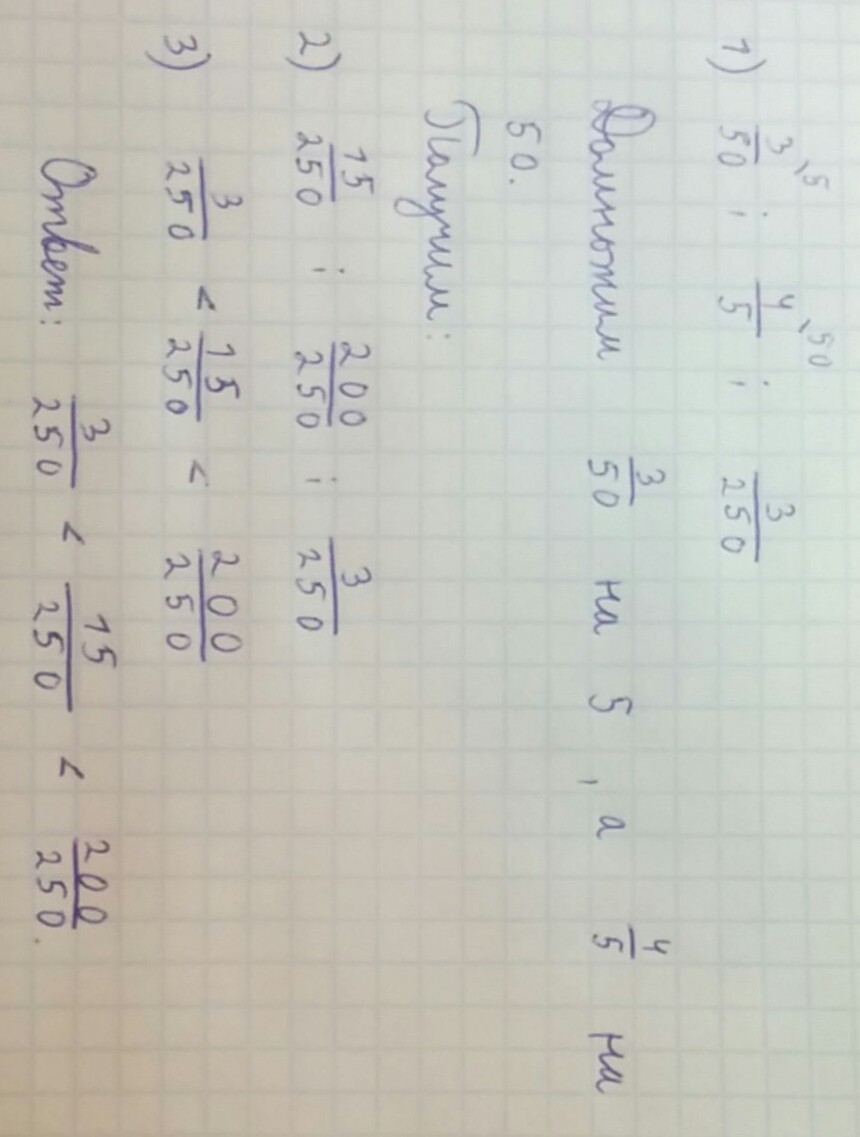 1) 3/50 ‵5 ; 4/5 ‵50 ; 3/250
Домножим 3/50 на 5, а 4/5 на
50.
Палучим:
2) 15/250 ; 200/250 ; 3/250
3) 3/250 < 15/250 < 200/250
Ответ: 3/250 < 15/250 < 200/250.